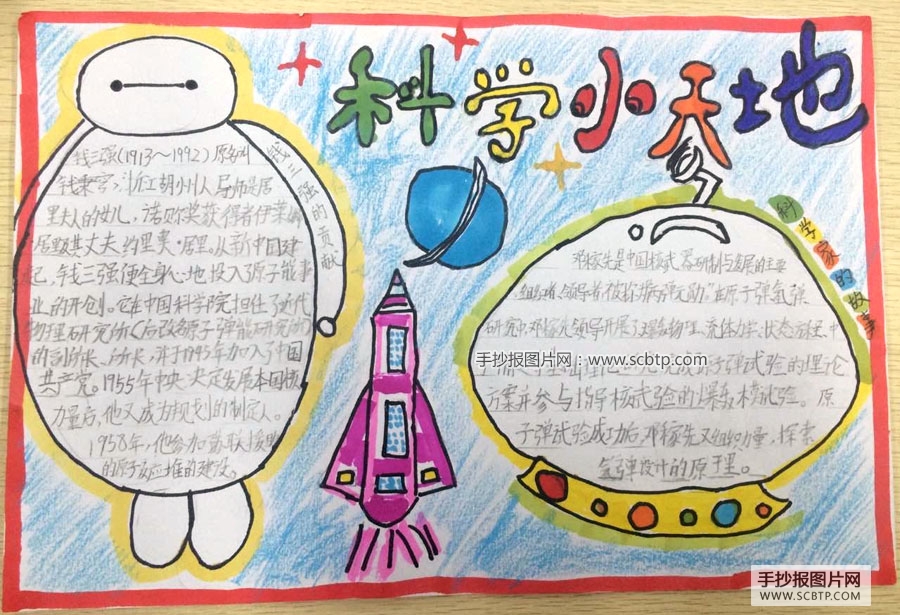 科学小天地
钱三强的贡献
钱三强(1913～1992)原名叫
钱秉穹,浙江胡州人
里夫人的女儿,诺贝尔奖获得者伊莱娜
居里及其丈夫约里奥·居里。从新中国建
起,钱三强便全身心地投入了原子能事
业的开创。它在中国科学院担任了近代
物理研究所(后改名原子弹能研究所)
的副所长、所长,并于
年加入了中国
共产党。1955年中央决定发展本国核
力量后,他又成为规划的制定人。
1958年,他参加了苏联援助
的原子反应堆的建设。
科学家的故事
邓稼先是中国核武器研制与发展的主要
组织者、领导者,被称为"两弹元勋"。在原子弹、氢弹
研究中,邓稼先领导开展了爆轰物理、流体力学、状态方程、中
手抄报图片网:www.scbtp.com
原子弹试验的理论
方案,并参与指导核试验的爆轰模拟试验。原
子弹试验成功后,邓稼先又组织力量,探索
氢弹设计的原理。
手抄报图片网
WWW.SCBTP.COM